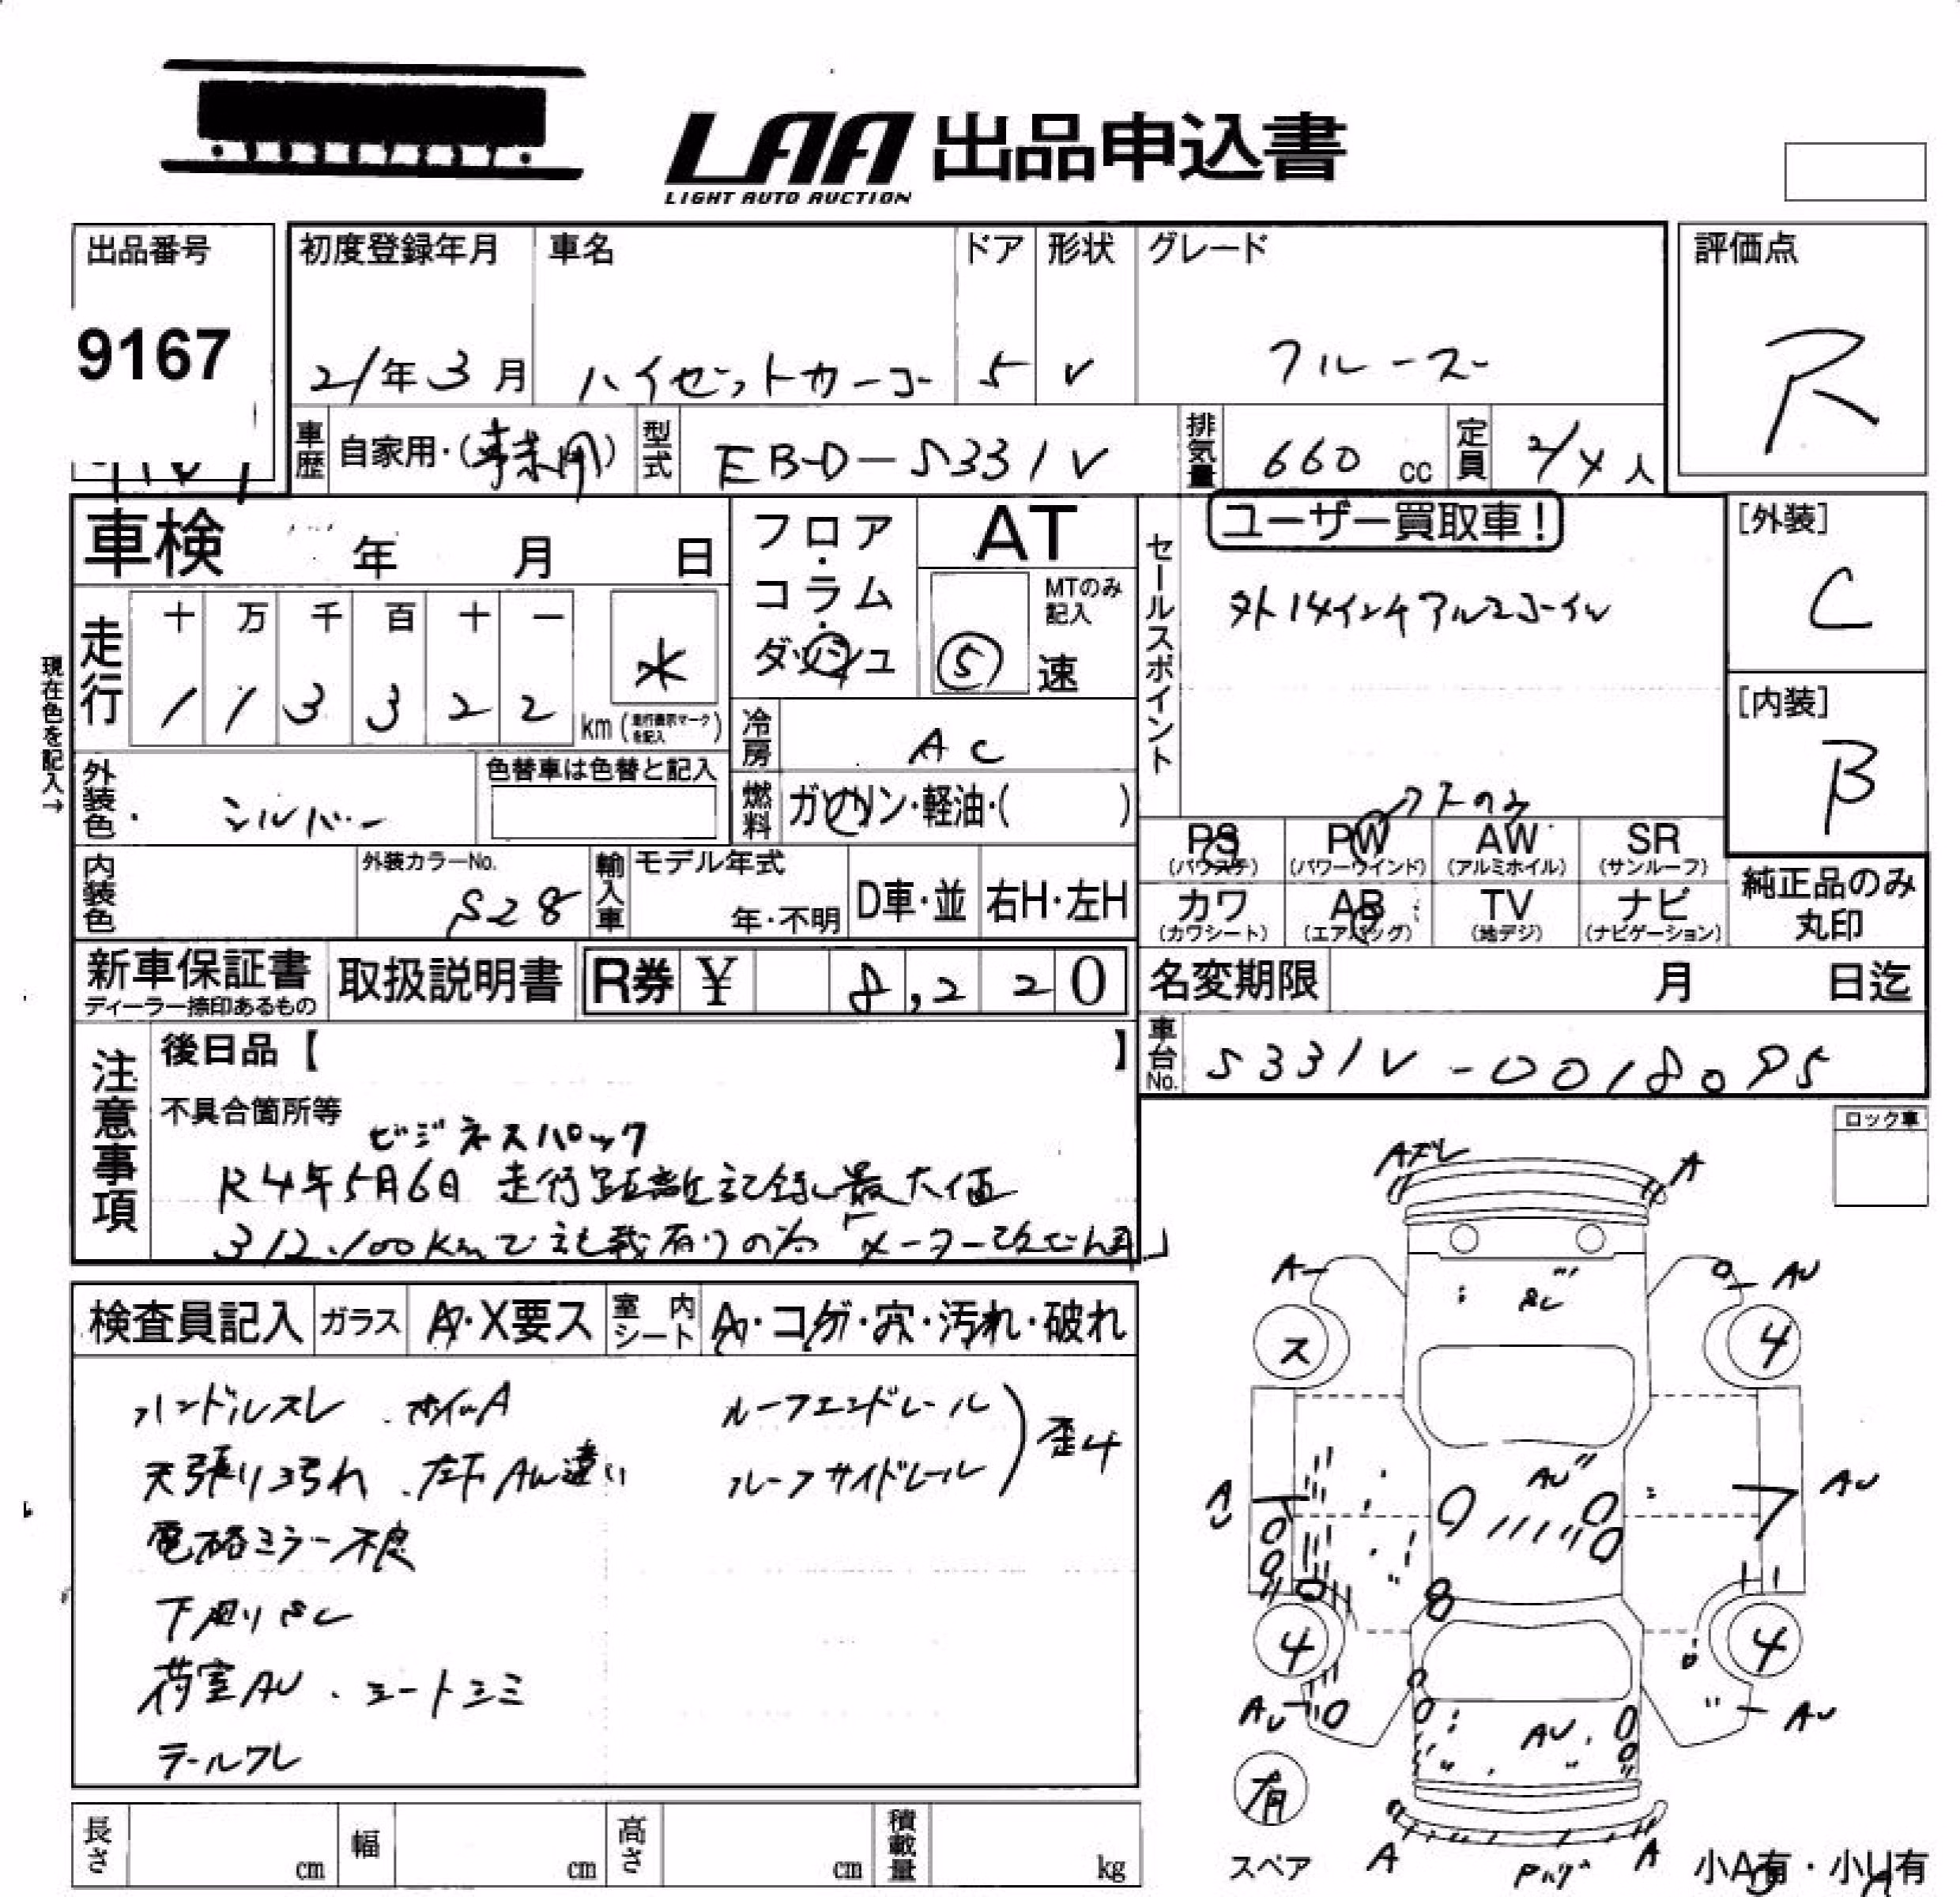 LAA 出品申込書
LIGHT AUTO AUCTION
出品番号
9167
初度登録年月
21年3月
車名
ハイゼットカーゴ
ドア
5
形状
V
グレード
クルーズ
評価点
R
車歴
自家用・(事業用)
型式
EBD-S331V
排気量
660 cc
定員
2/4人
車検 年 月 日
フロア・コラム・ダッシュ
AT
MTのみ記入
⑤速
セールスポイント
ユーザー買取車!
外14インチアルミホイル
[外装]
C
[内装]
B
現在色を記入→
走行
十 万 千 百 十 一
1 1 3 3 2 2 km (走行表示マークを記入)
*
冷房
AC
燃料
ガソリン・軽油・( )
外装色
シルバー
色替車は色替と記入
内装色
外装カラーNo.
S28
輸入車
モデル年式
年・不明
D車・並
右H・左H
→フストのみ
PS
(パワステ)
PW
(パワーウインド)
AW
(アルミホイル)
SR
(サンルーフ)
カワ
(カワシート)
AB
(エアバッグ)
TV
(地デジ)
ナビ
(ナビゲーション)
純正品のみ丸印
新車保証書
ディーラー捺印あるもの
取扱説明書
R券 ¥ 8,220
名変期限 月 日迄
車台No.
S331V-0018095
注意事項
後日品【 】
不具合箇所等
ビジネスパック
R4年5月6日 走行距離記録最大値
312,100Kmで記載有りの為「メーター改ざん車」
ロック車
検査員記入
ガラス
A・X要ス
室内シート
A・コゲ・穴・汚れ・破れ
ハンドルスレ . ホイルA
ルーフエンドレール
天張り汚れ . 左下AW違い
ルーフサイドレール
歪4
電格ミラー不良
下廻りサビ
荷室AU . シートシミ
テールワレ
Aズレ
A
A
AU
ス
4
AU
AU
AU
4
4
AU
AU
AU
有
スペア
A
A
小A有・小U有
長さ cm
幅 cm
高さ cm
積載量 kg